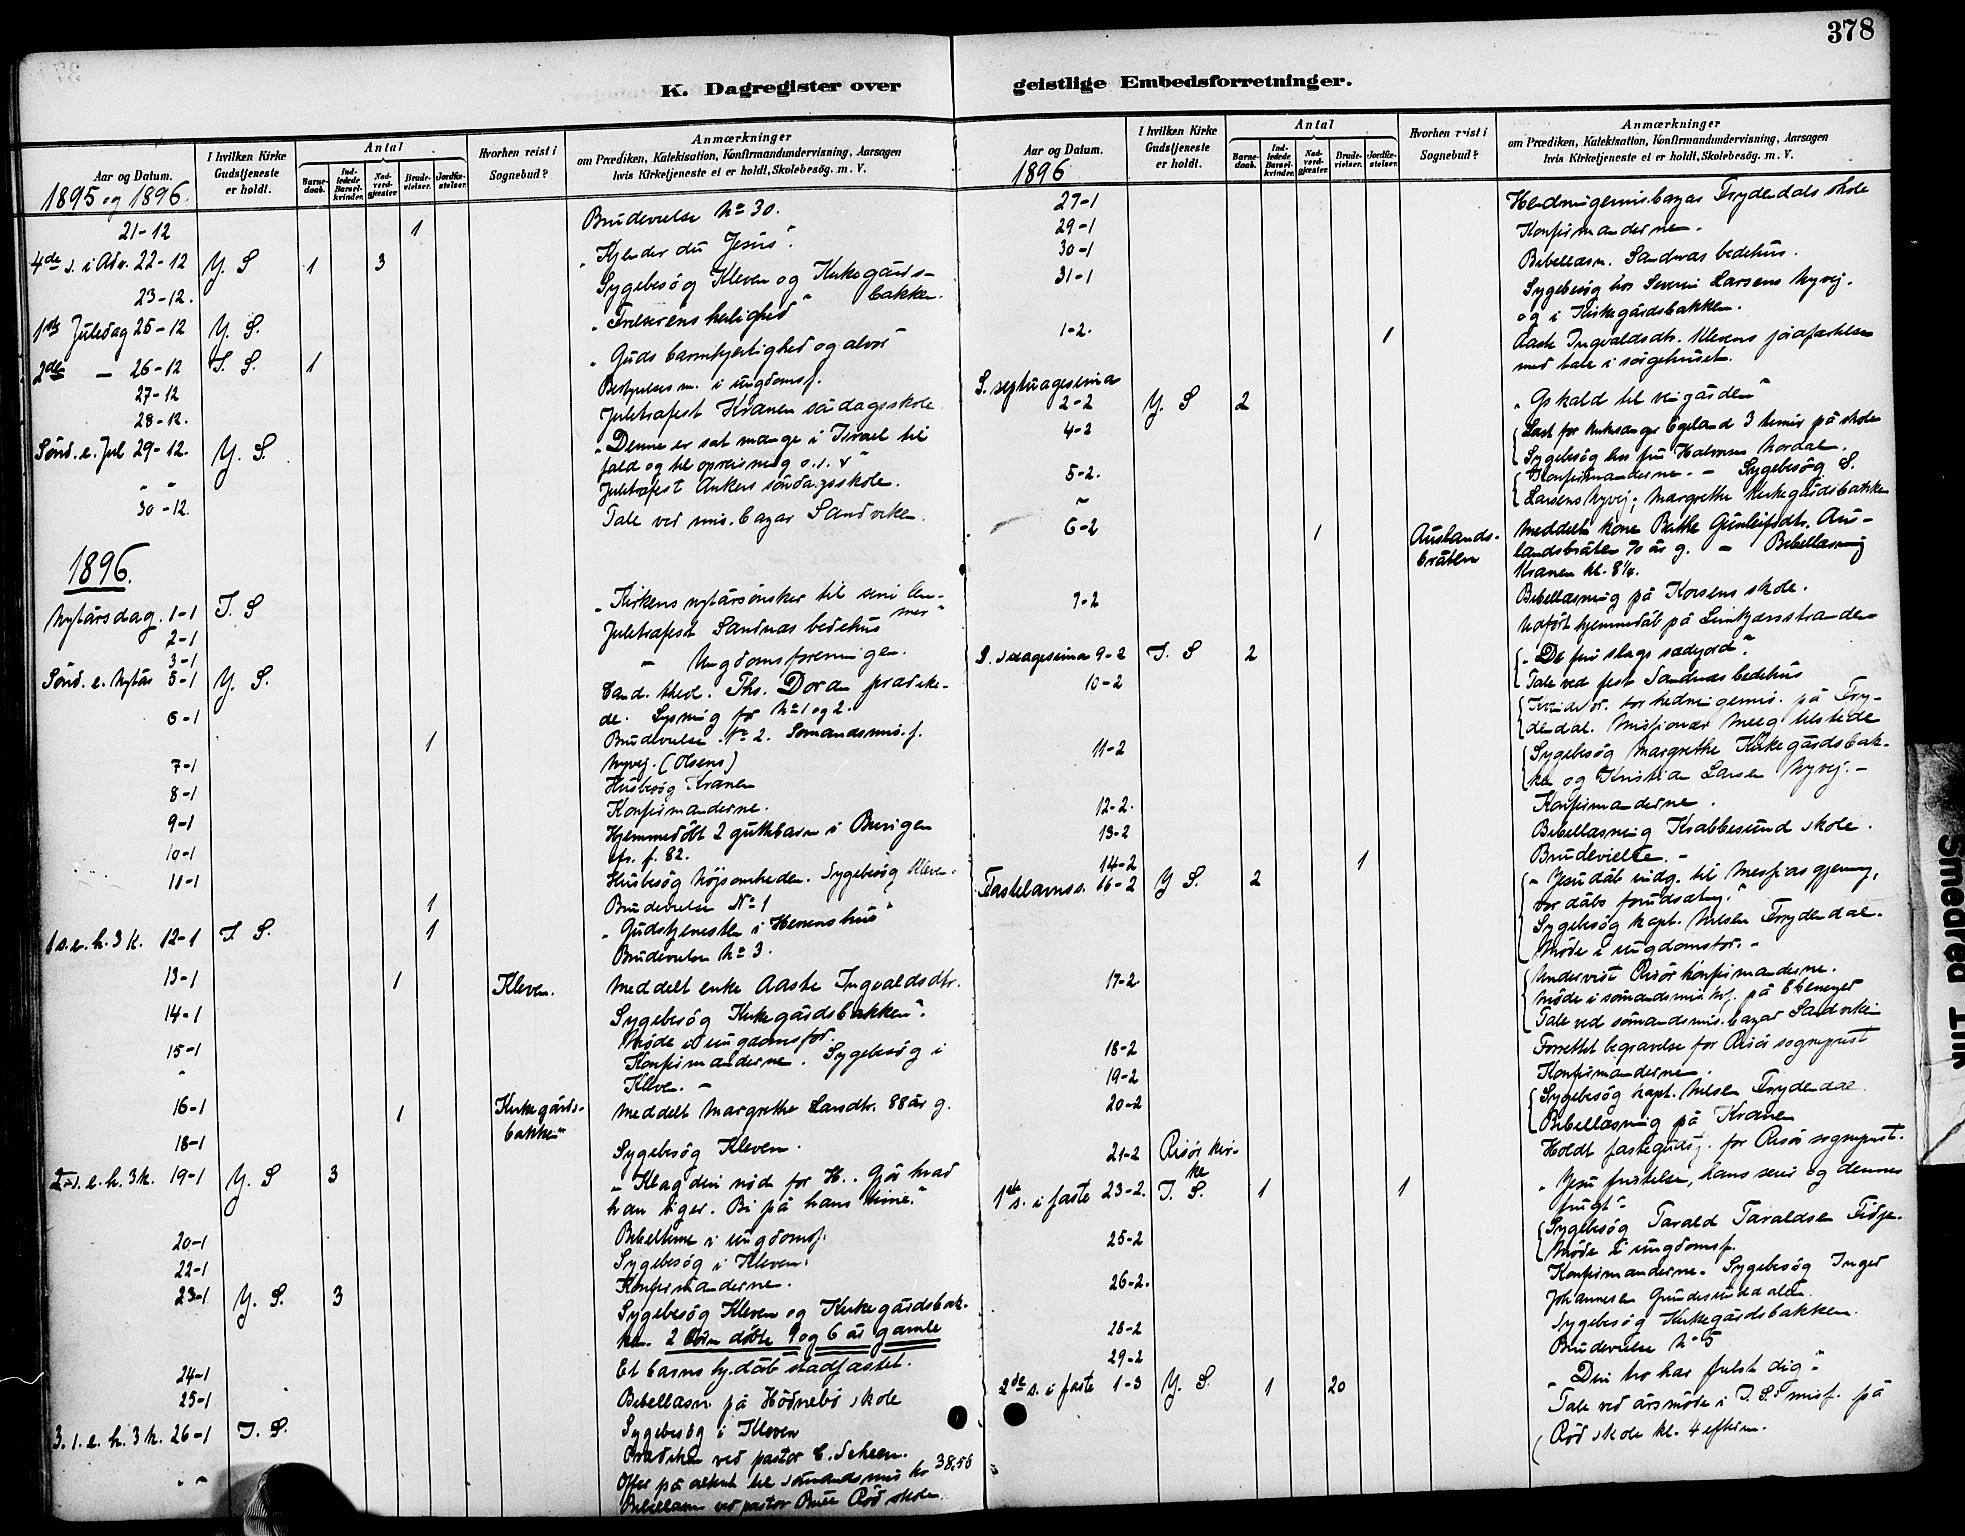 378
K. Dagregister over
geistlige Embedsforretninger.
Aar og Datum.
I hvilken Kirke
Gudstjeneste
er holdt.
Antal
Barne-
daab.
Ind-
ledede
Barsel-
kvinder.
Nad-
verd-
gjæster.
Brude-
vielser.
Jordfæ-
stelser.
Hvorhen reist i
Sognebud?
Anmærkninger
om Prædiken, Katekisation, Konfirmandundervisning, Aarsagen
hvis Kirketjeneste ei er holdt, Skolebesøg. m. V.
1895 og 1896.
21-12 1 Brudevielse No 30.
4de s. i Adv. 22-12 Y. S 1 3 "Kjender du Jesus".
23-12. Sygebesøg Kleven og Kirkegårds-
bakken.
1ste Juledag 25-12 Y. S. "Frelserens herlighed"
2den — 26-12 I. S. 1 "Guds barmhjertighed og alvor"
27-12 Bestyrelsesm. i ungdomsf.
28-12. Juletræfest Kranen søndagsskole
Sønd. e. Jul 29-12. Y. S. "Denne er sat mange i Israel til
fald og til opreisning o.s.v"
" " Juletræfest Ankers søndagsskole.
30-12. Tale ved mis. bazar Sandviken.
1896.
Nytårsdag. 1-1 I. S "Kirkens nytårsønsker til sine lem-
mer"
2-1 Juletræfest Sandnæs bedehus
3-1 — Ungdomsforeningen.
Sønd. e. Nytår 5-1 Y. S. Cand. theol. Ths. Dorden prædike-
de. Lysning for No 1 og 2.
6-1 1 Brudevielse No 2. Sømandsmis. f.
Nyvej. (Olsens)
7-1 Husbesøg Kranen
8-1 Konfirmanderne.
9-1 Hjemmedøbt 2 guttebarn i Buvigen
cfr. f. 82.
10-1 Husbesøg Nøjsomheden. Sygebesøg Kleven.
11-1 1 Brudevielse No 1
1 s. e. h. 3 k. 12-1 I. S. 1 "Gudstjenesten i Herrens hus"
Brudevielse No 3.
13-1 1 Kleven. Meddelt enke Aaste Ingvaldsdtr.
14-1 Sygebesøg Kirkegårdsbakken".
Møde i ungdomsfor.
15-1 Konfirmanderne. Sygebesøg i
Kleven. —
16-1 1 Kirkegårds-
bakken" Meddelt Margrethe Larsdtr. 88 år g.
18-1 Sygebesøg Kleven.
2 s. e. h. 3 k. 19-1 Y. S 3 "Klag din nød for H.. Gjør hvad
han siger. Bi på hans time."
20-1 Bibeltime i ungdomsf.
22-1 Sygebesøg i Kleven.
Konfirmanderne.
23-1 Y. S. 3 Sygebesøg Kleven og Kirkegårdsbak-
ken. 2 børn døbte 9 og 6 år gamle
24-1 Et barns hj.dåb stadfæstet.
25-1 Bibellæsn. på Hødnebø skole
3. s. e. h. 3 k. 26-1 I. S. Sygebesøg i Kleven
Prædiken ved pastor C. Scheen.
Offer på alteret til sømandsmis kr 38.56
" " Bibellæsn ved pastor Bull Rød skole
Aar og Datum.
I hvilken Kirke
Gudstjeneste
er holdt.
Antal
Barne-
daab.
Ind-
ledede
Barsel-
kvinder.
Nad-
verd-
gjæster.
Brude-
vielser.
Jordfæ-
stelser.
Hvorhen reist i
Sognebud?
Anmærkninger
om Prædiken, Katekisation, Konfirmandundervisning, Aarsagen
hvis Kirketjeneste ei er holdt, Skolebesøg. m. V.
1896
27-1 Hedningemis. bazar Frydendals skole
29-1 Konfirmanderne.
30-1 Bibellæsn. Sandnæs bedehus.
31-1 Sygebesøg hos Severin Larsens Nyvej.
og i Kirkegårdsbakken.
1-2. 1 Aaste Ingvaldsdtr. Klevens jordfæstelse
med tale i sørgehuset.
S. septuagesima
2-2 Y. S 2 "Gs kald til vingården"
4-2 Læst for Egeland 3 timer på skole
Sygebesøg hos fru Halvorsen Nordal.
5-2. Konfirmanderne. — Sygebesøg S.
Larsens Nyvej; Margrethe Kirkegårdsbakken
6-2 1 Auslands-
bråten Meddelt kone Berthe Gunleifsdtr. Aus-
landsbråten 70 år g. — Bibellæsning
Kranen kl. 8¼.
7-2 Bibellæsning på Korsens skole.
Udført hjemmedåb på Limkjærsstranden
S. sexagesima 9-2 I. S 2 "De fire slags sædejord".
Tale ved fest Sandnæs bedehus
10-2 Kvindefor. for hedningemis. på Fry-
dendal. Missionær Meeg tilstede
11-2 Sygebesøg Margrethe Kirkegårdsbak-
ken og Kristian Larsen Nyvej. —
12-2. Konfirmanderne.
13-2 Bibellæsning Krabbesund skole.
14-2 1 Brudevielse. —
Fastelavnss. 16-2 Y S. 2 "Jesu dåb indg. til Messiasgjerning,
vor dåbs forudsætng."
Sygebesøg kapt. Nielsen Frydendal.
Møde i ungdomsfor. —
17-2 Undervist Risør konfirmanderne.
Møde i sømandsmis.kvf. på Ebenezer
Tale ved sømandsmis. bazar Sandviken
18-2 Forrettet begravelse for Risør sogneprest
19-2 Konfirmanderne.
20-2 Sygebesøg kapt. Nielsen Frydendal
Bibellæsning på Kranen
21-2 Risør kir-
ke Holdt fastegudstj. for Risør sogneprest.
1ste s. i faste 23-2. I. S. 1 1 "Jesu fristelse, hans seier og dennes
frugt".
Sygebesøg Tarald Taraldsen Fidje.
25-2 Møde i ungdomsf.
26-2. Konfirmanderne. Sygebesøg Inger
Johannesen Grundesunddalen.
28-2 Sygebesøg Kirkegårdsbakken.
29-2 Brudevielse No 5
2den s. i faste 1-3 Y. S. 1 20 "Din tro har frelst dig".
Tale ved årsmøde i I. S.s misf. på
Rød skole kl. 4 efterm.
Smedred